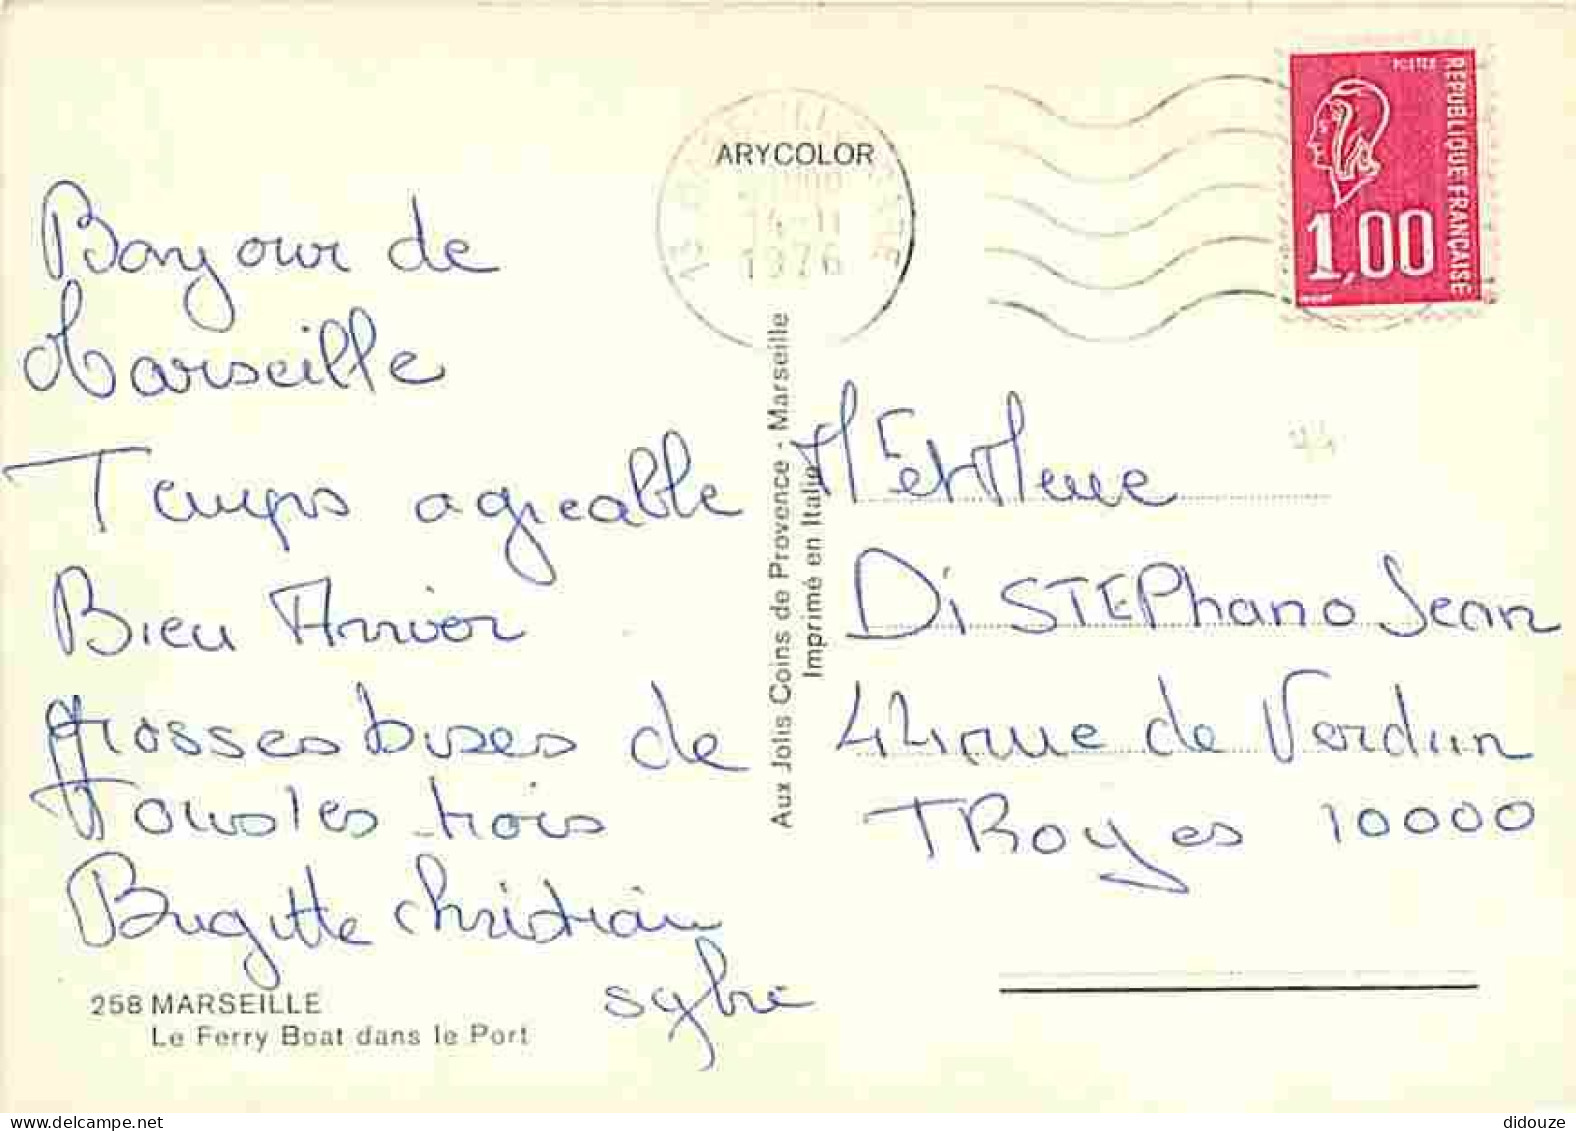 ARYCOLOR
1976
POSTES
REPUBLIQUE FRANÇAISE
1,00
Bonjour de
Marseille
Temps agreable
Bien Arriver
grosses bises de
Tous les trois
Brigitte christian
sylvie
258 MARSEILLE
Le Ferry Boat dans le Port
Aux Jolis Coins de Provence - Marseille
Imprimé en Italie
M et Meme
Di STEPhano Jean
rue de Verdun
TROyes 10000
didouze